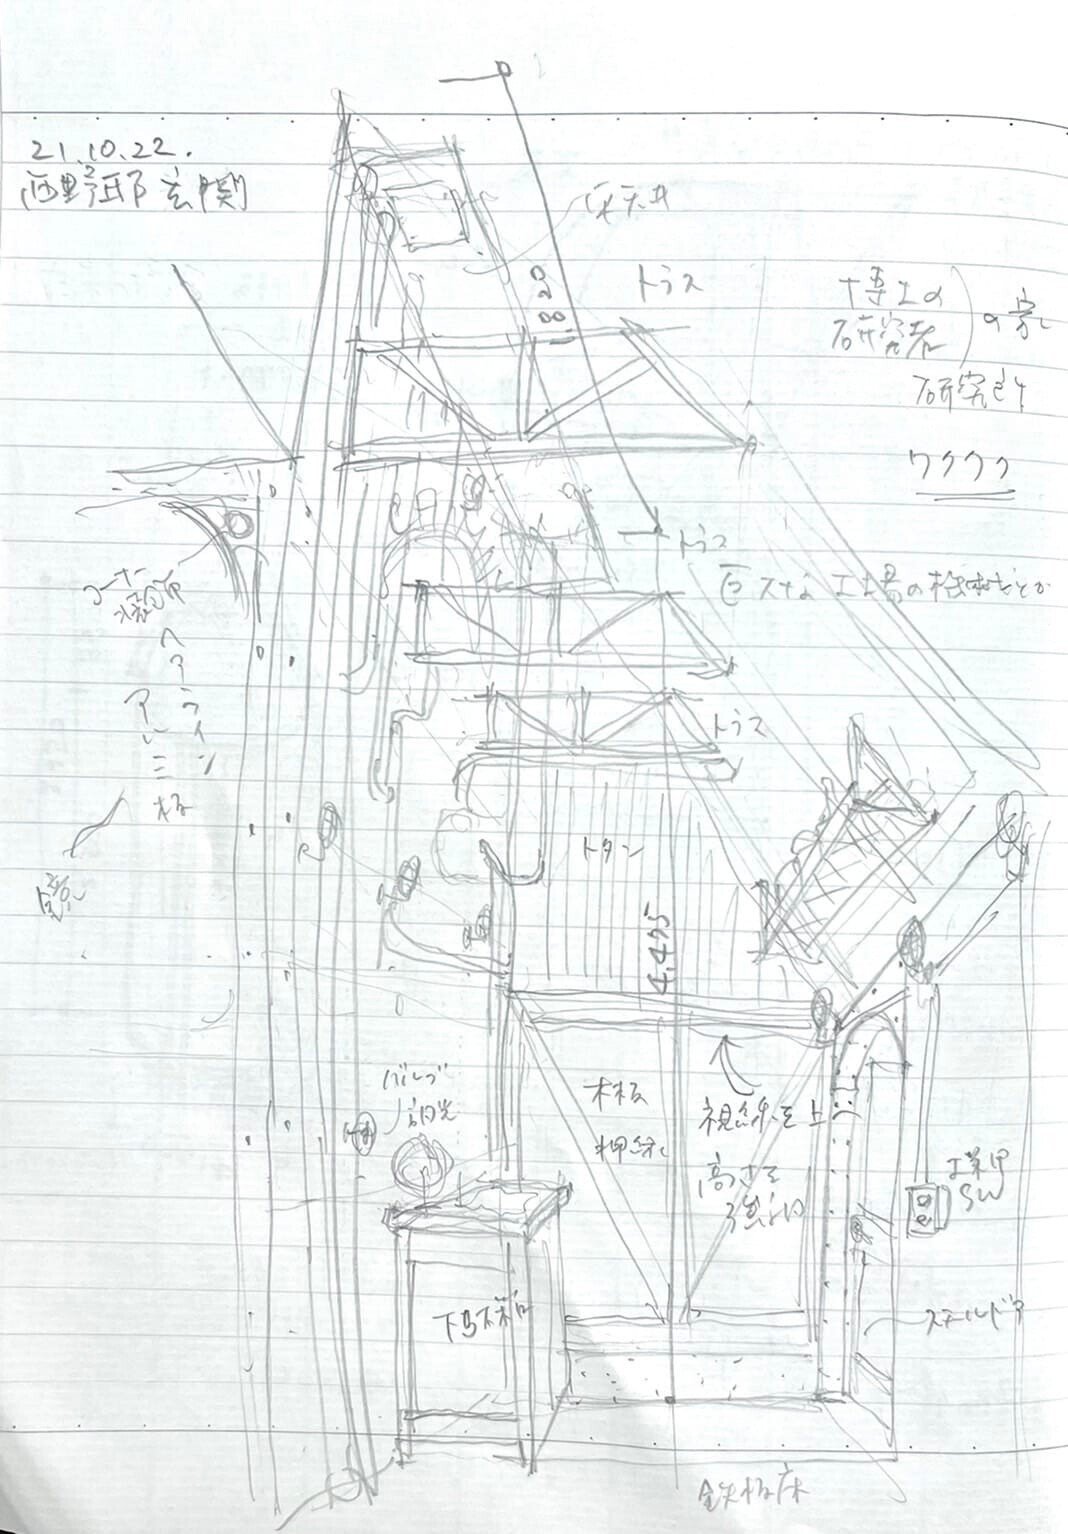 21.10.22.
西野邸玄関
床天井
トラス
820
博士の
研究者
の家
研究されト
ワクワク
トラス
巨大な工場の機械だとか
コーナー
装飾
ヘアライン
アルミ
板
トラス
トタン
鏡
4,475
バルブ
調光
木板
押縁
視線を上
高さを
強調
工業用
SW
下駄箱
スチールドア
鉄板床